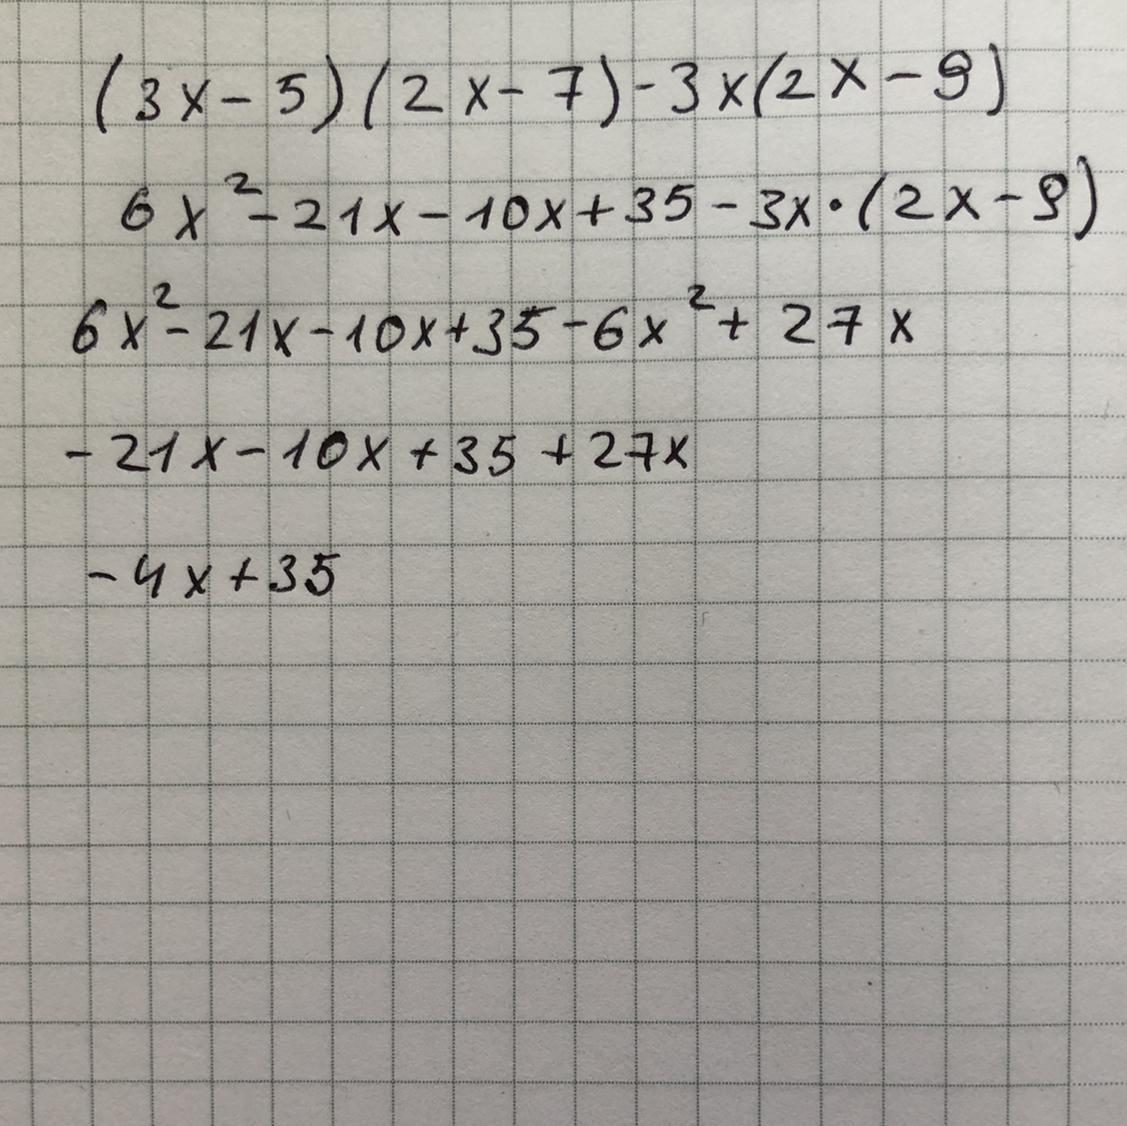 (3x-5)(2x-7)-3x(2x-9)
6x²-21x-10x+35-3x·(2x-9)
6x²-21x-10x+35-6x²+27x
-21x-10x+35+27x
-4x+35